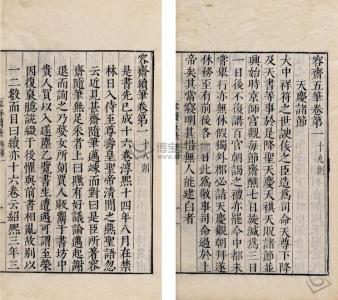 容齋五筆卷第一 十九則
天慶諸節
大中祥符之世諛佞之臣造為司命天尊下降
及天書等事於是降聖天慶天祺天貺諸節並
興始時京師宮觀每節齋醮七日旋減為三日
一日後不復講百官朝謁之禮亦罷今中都未
嘗舉行亦無休假獨外郡必詣天慶觀朝拜遂
休務至有前後各一日此為敬事司命過於上
帝矣其當寢明甚惜無人能建白者
容齋續筆卷第一 則
是書先已成十六卷淳熙十四年八月在禁
林日入侍至尊壽皇聖帝清閒之燕聖語忽
云近見甚齋隨筆邁竦而對曰是臣所著容
齋隨筆無足采者上曰煞有好議論邁起謝
退而詢之乃婺女所刻賈人販鬻于書坊中
貴人買以入遂塵乙覽書生遭遇可謂至榮
因復裒臆說綴于後懼與前書相亂故別以
一二數而目曰續亦十六卷云紹熙三年三